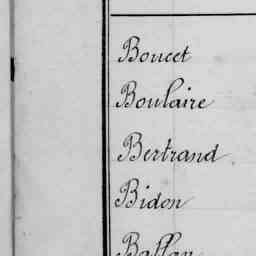 Boucet
Boulaire
Bertrand
Bidon